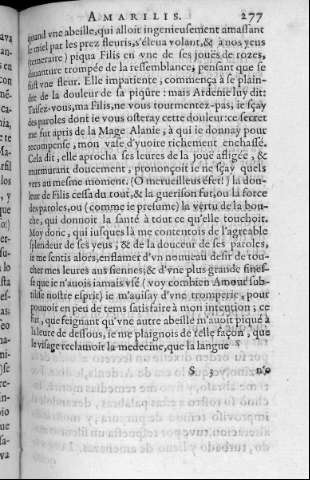 AMARILIS. 277
quand vne abeille, qui alloit ingenieusement amassant
le miel par les prez fleuris, s'éleua volant, & à nos yeux
(temeraire) piqua Filis en vne de ses joües de rozes,
d'auanture trompée de la ressemblance, pensant que se
fust vne fleur. Elle impatiente, commença à se plain-
dre de la douleur de sa piqûre: mais Ardenie luy dit:
Taisez-vous, ma Filis, ne vous tourmentez pas, ie sçay
des paroles dont ie vous osteray cette douleur: ce secret
me fut apris de la Mage Alanie, à qui ie donnay pour
recompense, mon vase d'yuoire richement enchassé.
Cela dit, elle aprocha ses leures de la joüe afligée, &
murmurant doucement, prononçoit ie ne sçay quels
vers au mesme moment. (O merueilleus éfet!) la dou-
leur de Filis cessa du tout, & la guerison fut, ou la force
des paroles, ou (comme ie presume) la vertu de la bou-
che, qui donnoit la santé à tout ce qu'elle touchoit.
Moy donc, qui iusques là me contentois de l'agreable
splendeur de ses yeus, & de la douceur de ses paroles,
ie me sentis alors, enflamer d'vn nouueau desir de tou-
cher mes leures aus siennes; & d'vne plus grande fines-
se que ie n'auois iamais vsé (voy combien Amour sub-
tilise nostre esprit) ie m'auisay d'vne tromperie, pour
pouuoir en peu de tems satisfaire à mon intention; ce
fut, que feignant qu'vne autre abeille m'auoit piqué à
la leure de dessous, ie me plaignois de telle façon, que
le visage reclamoit la medecine, que la langue
S 3 n'o